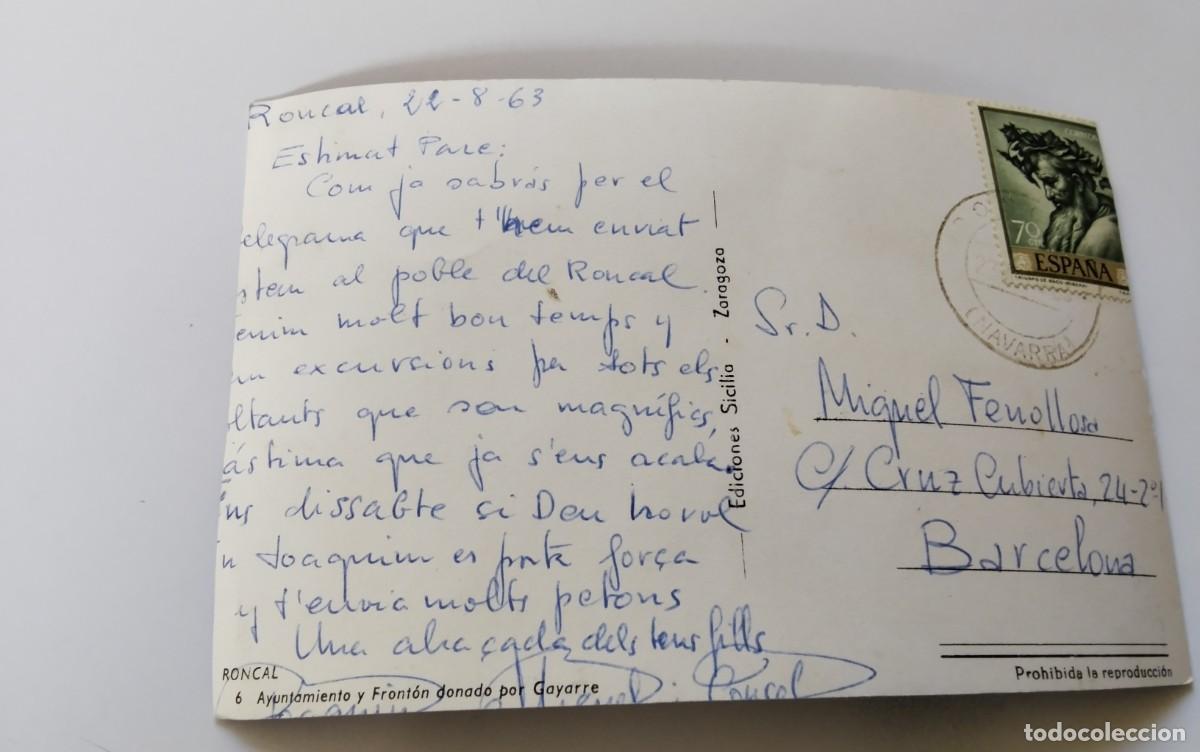 Roncal, 22-8-63
Estimat Pare:
Com ja sabràs per el
elegrama que t'hem enviat
stem al poble del Roncal.
enim molt bon temps y
excursions per tots els
oltants que son magnífics,
àstima que ja s'ens acaba.
ns dissabte si Deu ho vol
n Joaquim es porta força
y t'envia molts petons
Una abraçada dels teus fills
Joaquim Miguel i
RONCAL
6 Ayuntamiento y Frontón donado por Gayarre
Ediciones Sicilia - Zaragoza
CORREOS
70
CTS
ESPAÑA
(NAVARRA)
Sr. D.
Miguel Fenollosa
c/ Cruz Cubierta, 24-2º-1
Barcelona
Prohibida la reproducción
todocoleccion